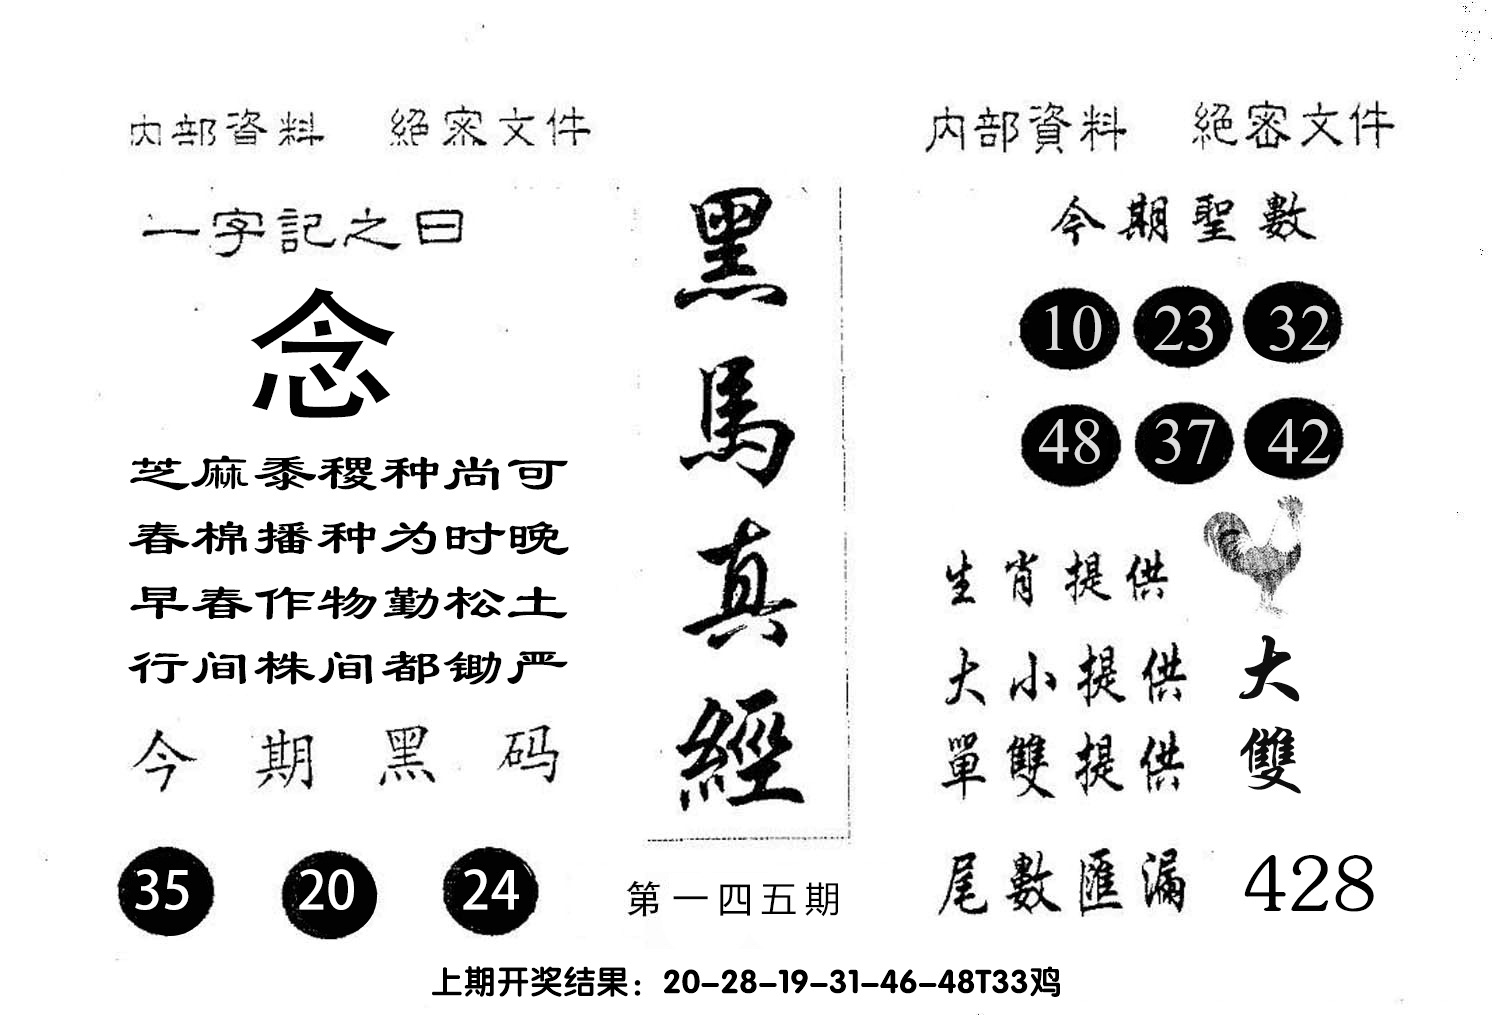 内部資料 絕密文件
一字記之曰
念
芝麻黍稷种尚可
春棉播种为时晚
早春作物勤松土
行间株间都锄严
今期黑码
35 20 24
黑馬真經
第一四五期
内部資料 絕密文件
今期聖數
10 23 32
48 37 42
生肖提供
大小提供 大
單雙提供 雙
尾數匯漏 428
上期开奖结果：20-28-19-31-46-48T33鸡